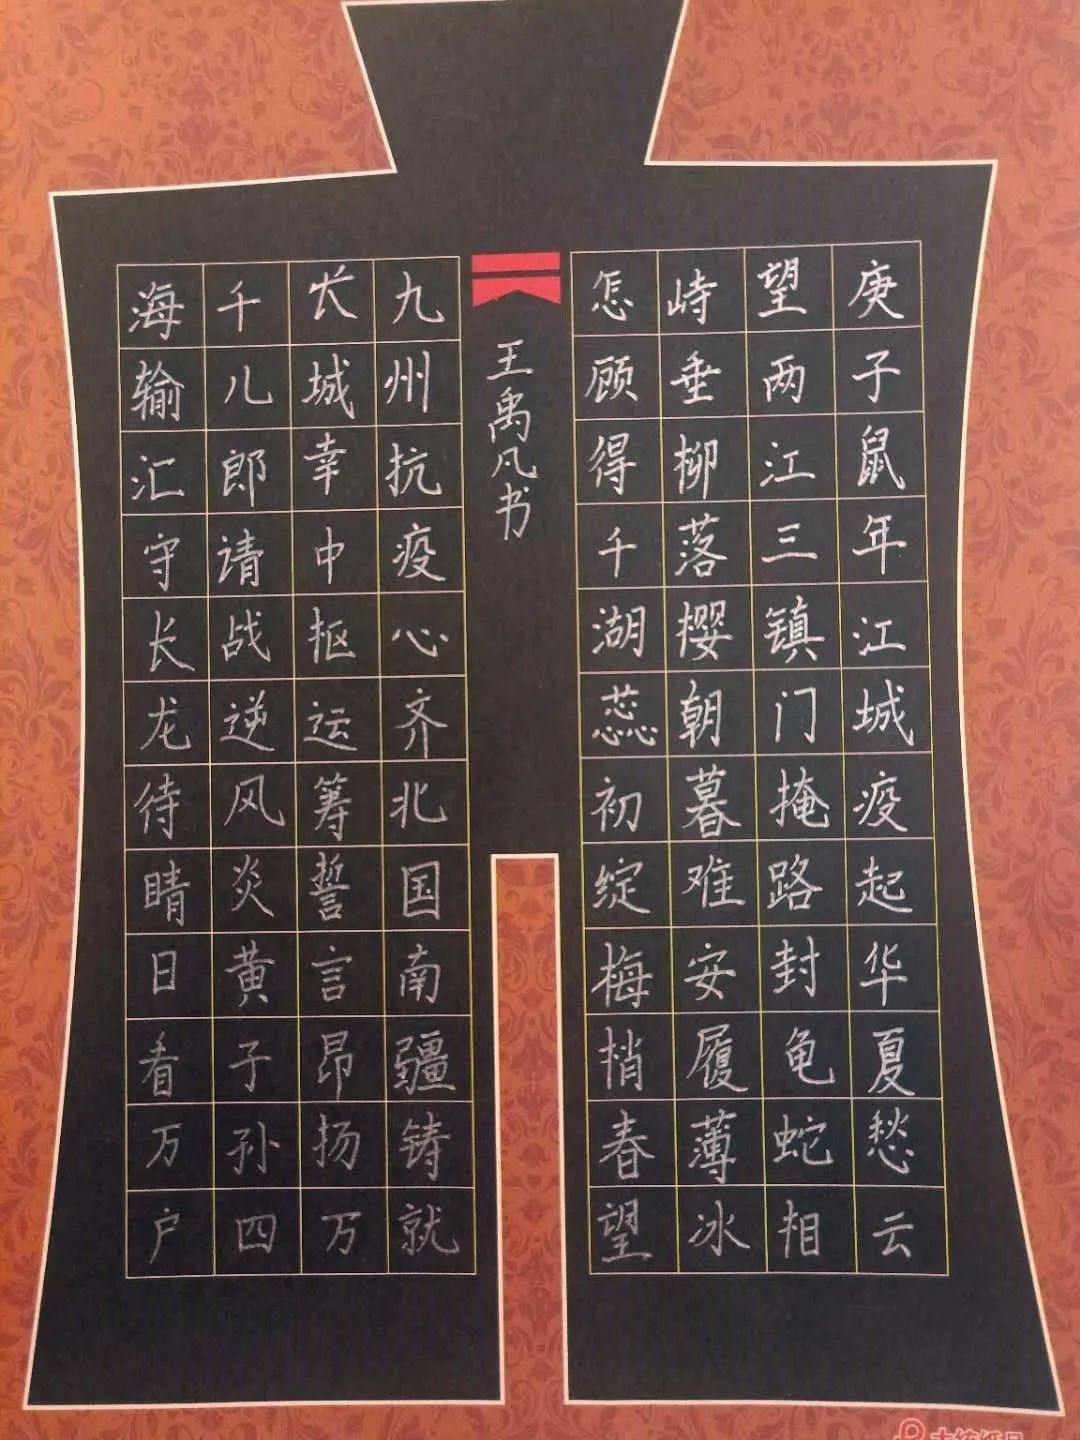 庚子鼠年江城疫起华夏愁云
望两江三镇门掩路封龟蛇相
峙垂柳落樱朝暮难安履薄冰
怎顾得千湖蕊初绽梅梢春望
九州抗疫心齐北国南疆铸就
长城幸中枢运筹誓言昂扬万
千儿郎请战逆风炎黄子孙四
海输汇守长龙待晴日看万户
王禹凡书